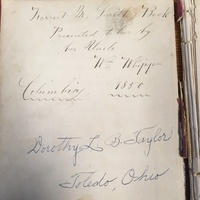 Harriet M. Smith Book
Presented to her by
her Uncle
Wm Whipper
Columbia 1850
Dorothy L B. Taylor
Toledo, Ohio